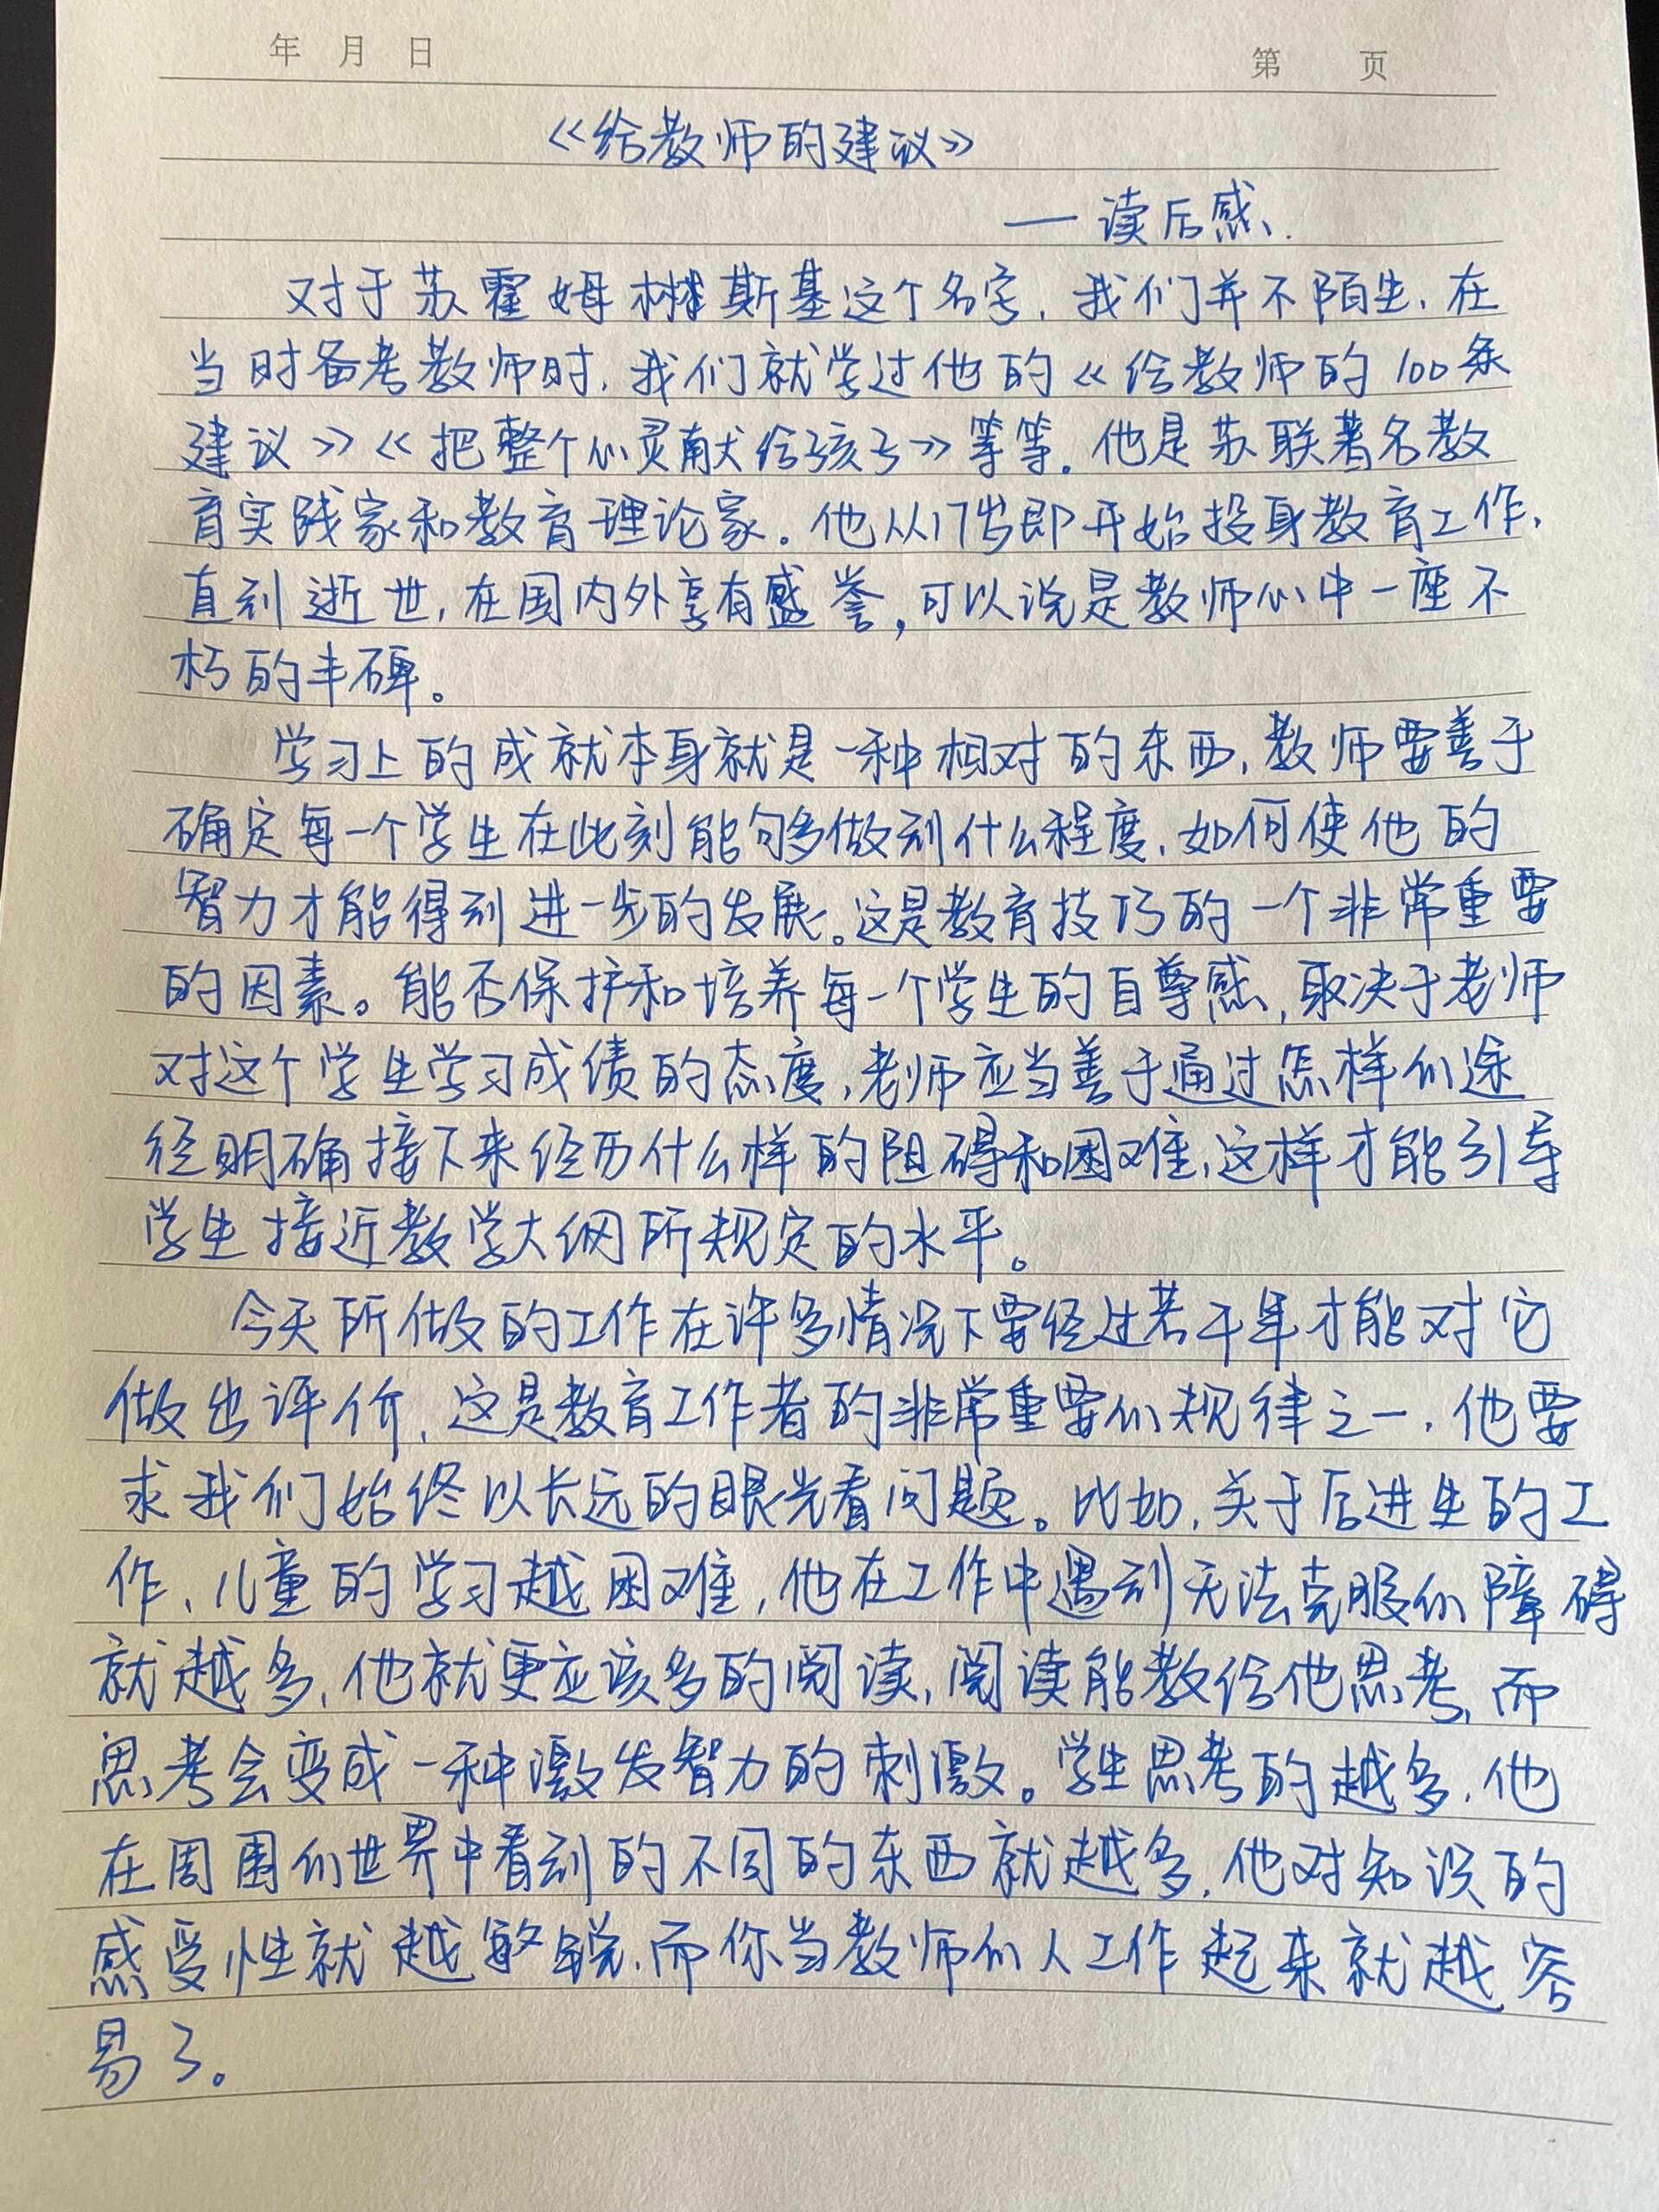 年 月 日 第 页
《给教师的建议》
— 读后感.
对于苏霍姆林斯基这个名字,我们并不陌生,在
当时备考教师时,我们就学过他的《给教师的100条
建议》《把整个心灵献给孩子》等等。他是苏联著名教
育实践家和教育理论家。他从17岁即开始投身教育工作,
直到逝世,在国内外享有盛誉,可以说是教师心中一座不
朽的丰碑。
学习上的成就本身就是一种相对的东西,教师要善于
确定每一个学生在此刻能够做到什么程度,如何使他的
智力才能得到进一步的发展。这是教育技巧的一个非常重要
的因素。能否保护和培养每一个学生的自尊感,取决于老师
对这个学生学习成绩的态度,老师应当善于通过怎样的途
径明确接下来经历什么样的阻碍和困难,这样才能引导
学生接近教学大纲所规定的水平。
今天所做的工作在许多情况下要经过若干年才能对它
做出评价,这是教育工作者的非常重要的规律之一,他要
求我们始终以长远的眼光看问题。比如,关于后进生的工
作,儿童的学习越困难,他在工作中遇到无法克服的障碍
就越多,他就更应该多的阅读,阅读能教给他思考,而
思考会变成一种激发智力的刺激。学生思考的越多,他
在周围的世界中看到的不同的东西就越多,他对知识的
感受性就越敏锐,而你当教师的人工作起来就越容
易了。